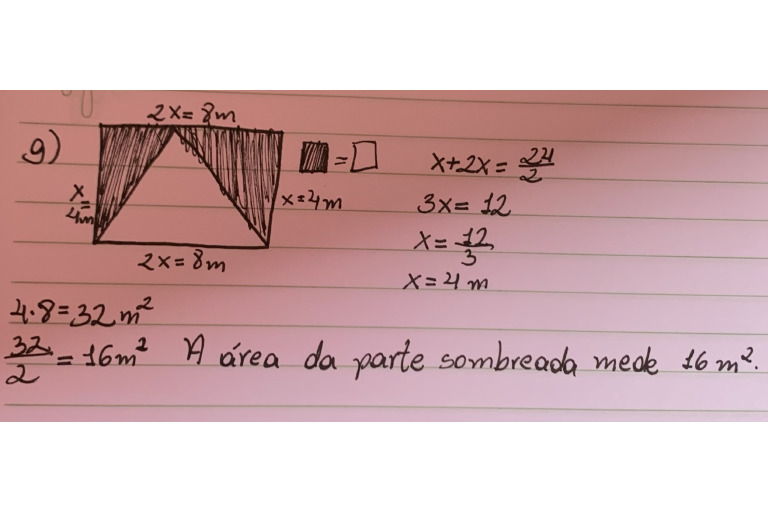 2x = 8m
9)
x = 4m
x = 4m
2x = 8m
=
x + 2x = 24/2
3x = 12
x = 12/3
x = 4 m
4·8 = 32 m²
32/2 = 16m² A área da parte sombreada mede 16 m².